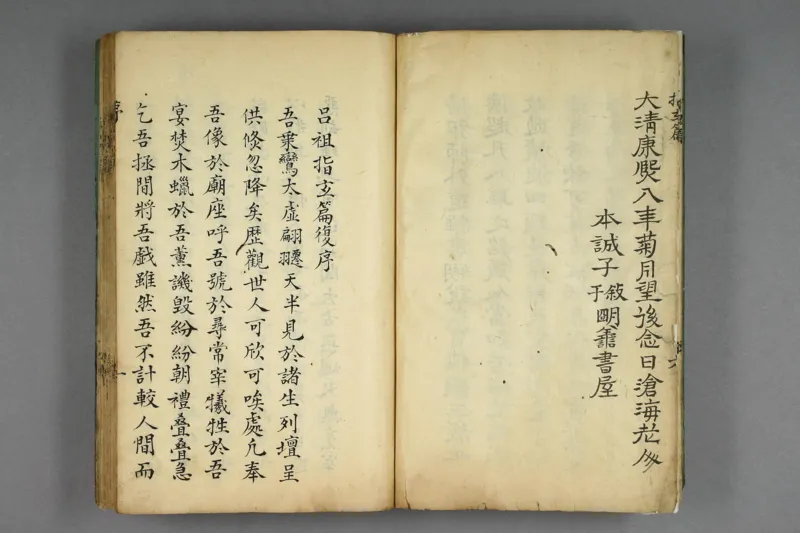 指玄篇
大清康熙八年菊月望後念日滄海老
本誠子敍
于明龕書屋
呂祖指玄篇復序
吾乘鸞太虛翩躚天半見於諸生列壇呈
供倏忽降矣歷觀世人可欣可唉處凡奉
吾像於廟座呼吾號於尋常宰犧牲於吾
宴焚木蠟於吾薰譏毀紛紛朝禮疊疊急
乞吾拯間將吾戲雖然吾不計較人間而
序
一